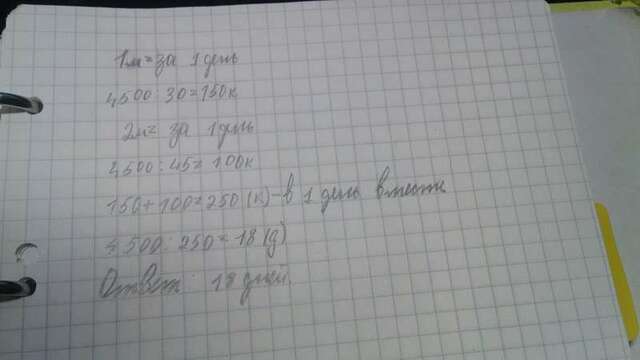 1м= за 1 день
4500:30=150к
2м= за 1день
4500:45=100к
150+100=250 (к)-в 1 день вместе
4500:250=18 (д)
Ответ: 18 дней.